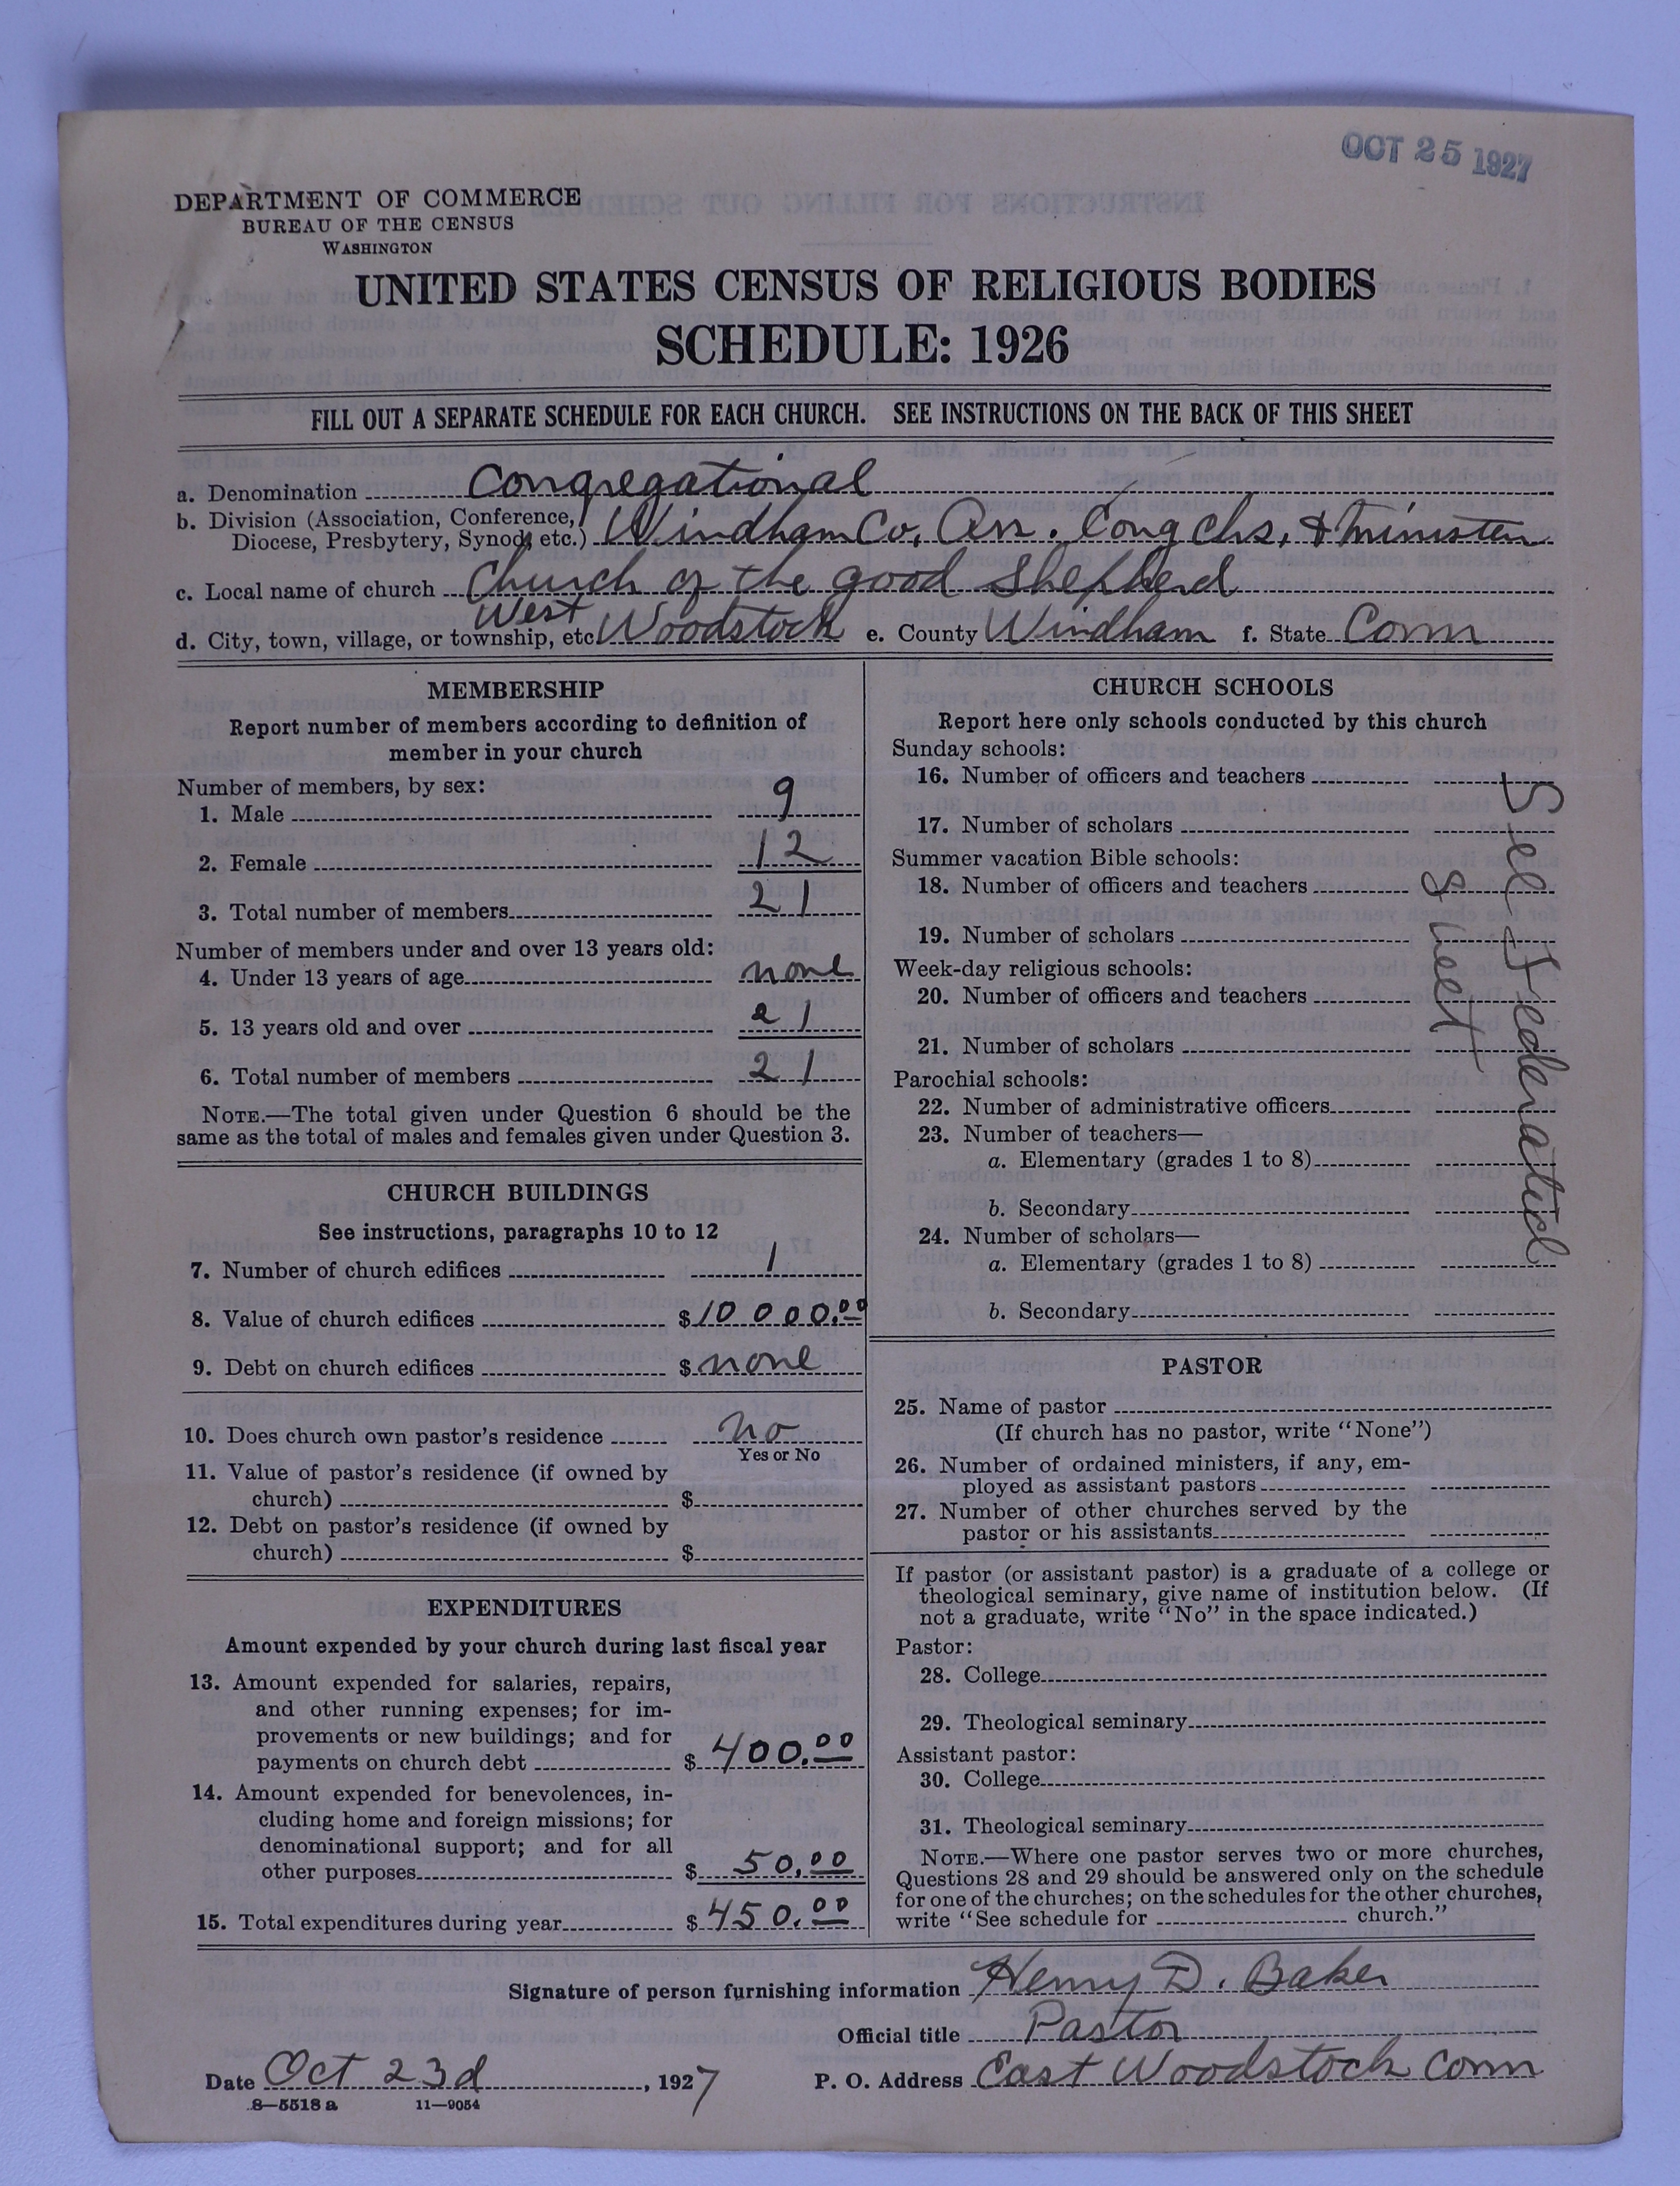 OCT 25 1927
DEPARTMENT OF COMMERCE
BUREAU OF THE CENSUS
WASHINGTON
UNITED STATES CENSUS OF RELIGIOUS BODIES
SCHEDULE: 1926
FILL OUT A SEPARATE SCHEDULE FOR EACH CHURCH. SEE INSTRUCTIONS ON THE BACK OF THIS SHEET
a. Denomination Congregational
b. Division (Association, Conference,
Diocese, Presbytery, Synod, etc.) Windham Co. Ass. Cong chs. & Ministers
c. Local name of church Church of the good Shepherd
West
d. City, town, village, or township, etc. Woodstock e. County Windham f. State Conn
MEMBERSHIP
Report number of members according to definition of
member in your church
Number of members, by sex:
1. Male 9
2. Female 12
3. Total number of members 21
Number of members under and over 13 years old:
4. Under 13 years of age none
5. 13 years old and over 21
6. Total number of members 21
NOTE.—The total given under Question 6 should be the
same as the total of males and females given under Question 3.
CHURCH BUILDINGS
See instructions, paragraphs 10 to 12
7. Number of church edifices 1
8. Value of church edifices $10000.00
9. Debt on church edifices $ none
10. Does church own pastor's residence no
Yes or No
11. Value of pastor's residence (if owned by
church) $
12. Debt on pastor's residence (if owned by
church) $
EXPENDITURES
Amount expended by your church during last fiscal year
13. Amount expended for salaries, repairs,
and other running expenses; for im-
provements or new buildings; and for
payments on church debt $ 400.00
14. Amount expended for benevolences, in-
cluding home and foreign missions; for
denominational support; and for all
other purposes $ 50.00
15. Total expenditures during year $ 450.00
CHURCH SCHOOLS
Report here only schools conducted by this church
Sunday schools:
16. Number of officers and teachers
17. Number of scholars
Summer vacation Bible schools:
18. Number of officers and teachers
19. Number of scholars
Week-day religious schools:
20. Number of officers and teachers
21. Number of scholars
Parochial schools:
22. Number of administrative officers
23. Number of teachers—
a. Elementary (grades 1 to 8)
b. Secondary
24. Number of scholars—
a. Elementary (grades 1 to 8)
b. Secondary
See Federated
Sheet
PASTOR
25. Name of pastor
(If church has no pastor, write "None")
26. Number of ordained ministers, if any, em-
ployed as assistant pastors
27. Number of other churches served by the
pastor or his assistants
If pastor (or assistant pastor) is a graduate of a college or
theological seminary, give name of institution below. (If
not a graduate, write "No" in the space indicated.)
Pastor:
28. College
29. Theological seminary
Assistant pastor:
30. College
31. Theological seminary
NOTE.—Where one pastor serves two or more churches,
Questions 28 and 29 should be answered only on the schedule
for one of the churches; on the schedules for the other churches,
write "See schedule for church."
Signature of person furnishing information Henry D. Baker
Official title Pastor
Date Oct 23d, 1927 P. O. Address East Woodstock Conn
8—5518 a 11—9054